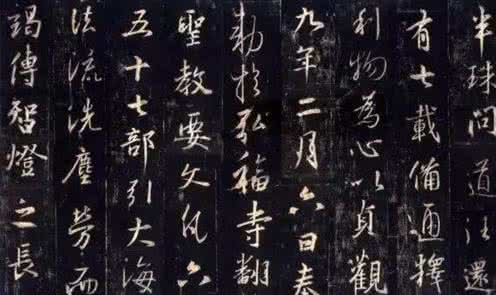 半珠問道往還
有七載備通釋
利物為心以貞觀
九年二月六日奉
勅於弘福寺翻
聖教要文凡六
五十七部引大海
法流洗塵勞而
竭傳智燈之長